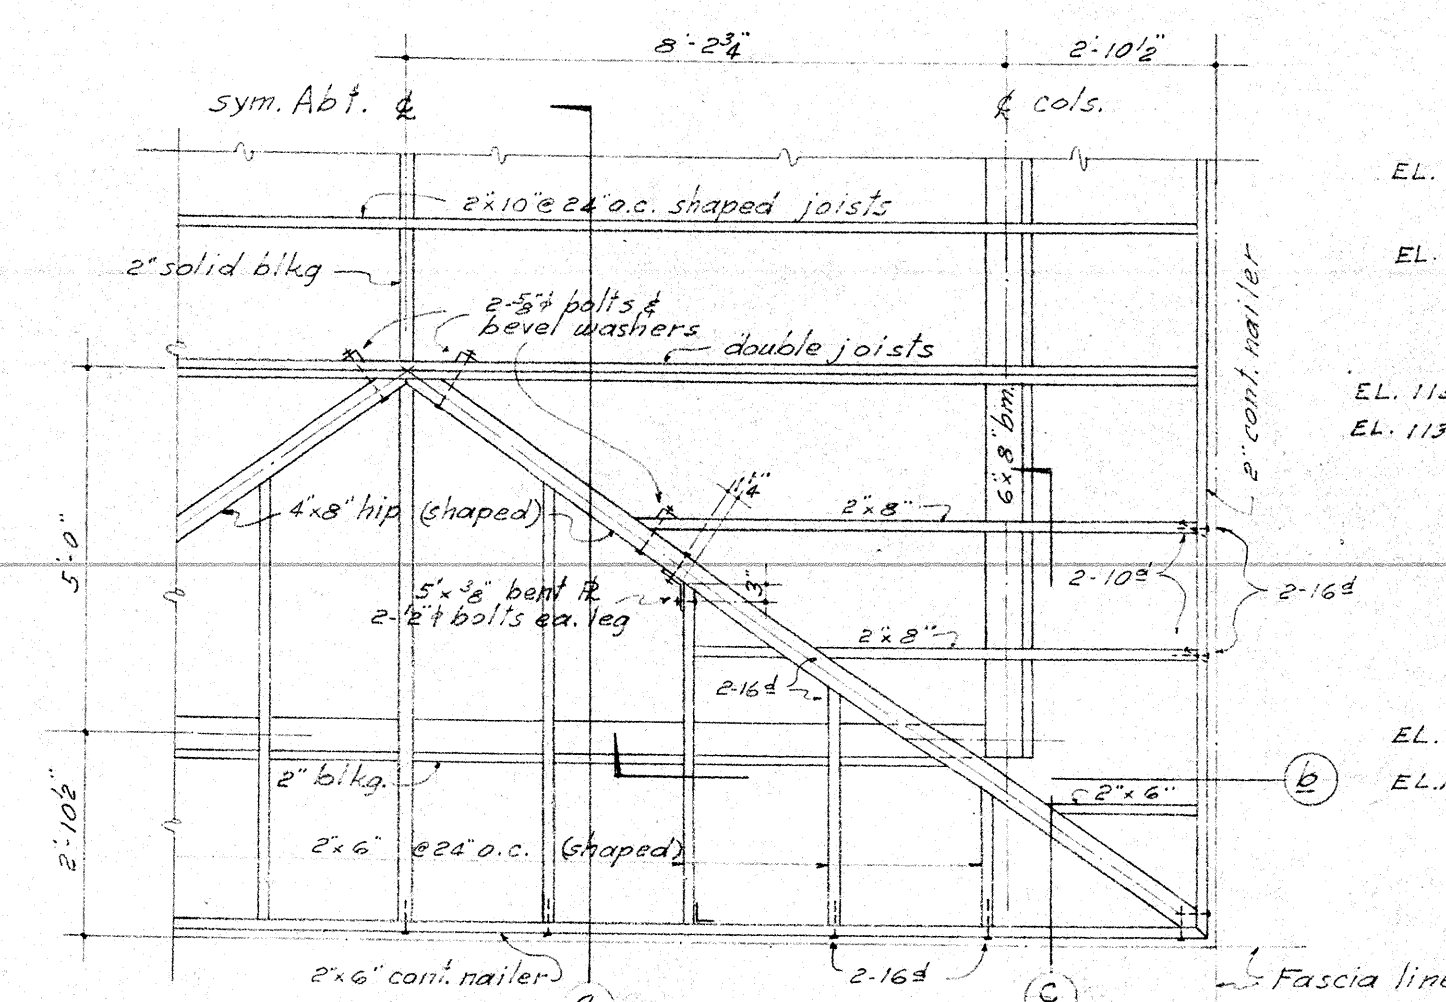 8'-2¾"
2'-10½"
sym. Abt. ℄
℄ cols.
EL.
2"x10"@24"o.c. shaped joists
2" solid blkg
EL.
2-⅝"ϕ bolts &
bevel washers
double joists
2" cont. nailer
EL. 113
EL. 113
6"x8" bm.
4"x8" hip (shaped)
1¼"
2"x8"
5'-0"
5"x⅜" bent ℞
2-½"ϕ bolts ea. leg
3"
2-10d
2-16d
2"x8"
2-16d
EL.
2" blkg.
b
EL.
2"x6"
2'-10½"
2"x6" @24"o.c. (shaped)
2"x6" cont. nailer
2-16d
c
Fascia line